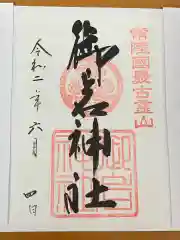 常陸國最古霊山
御岩神社
令和二年六月
四日